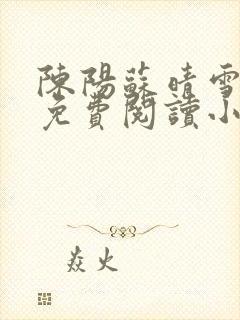 陳陽蘇晴雪
免費閱讀小
焱火